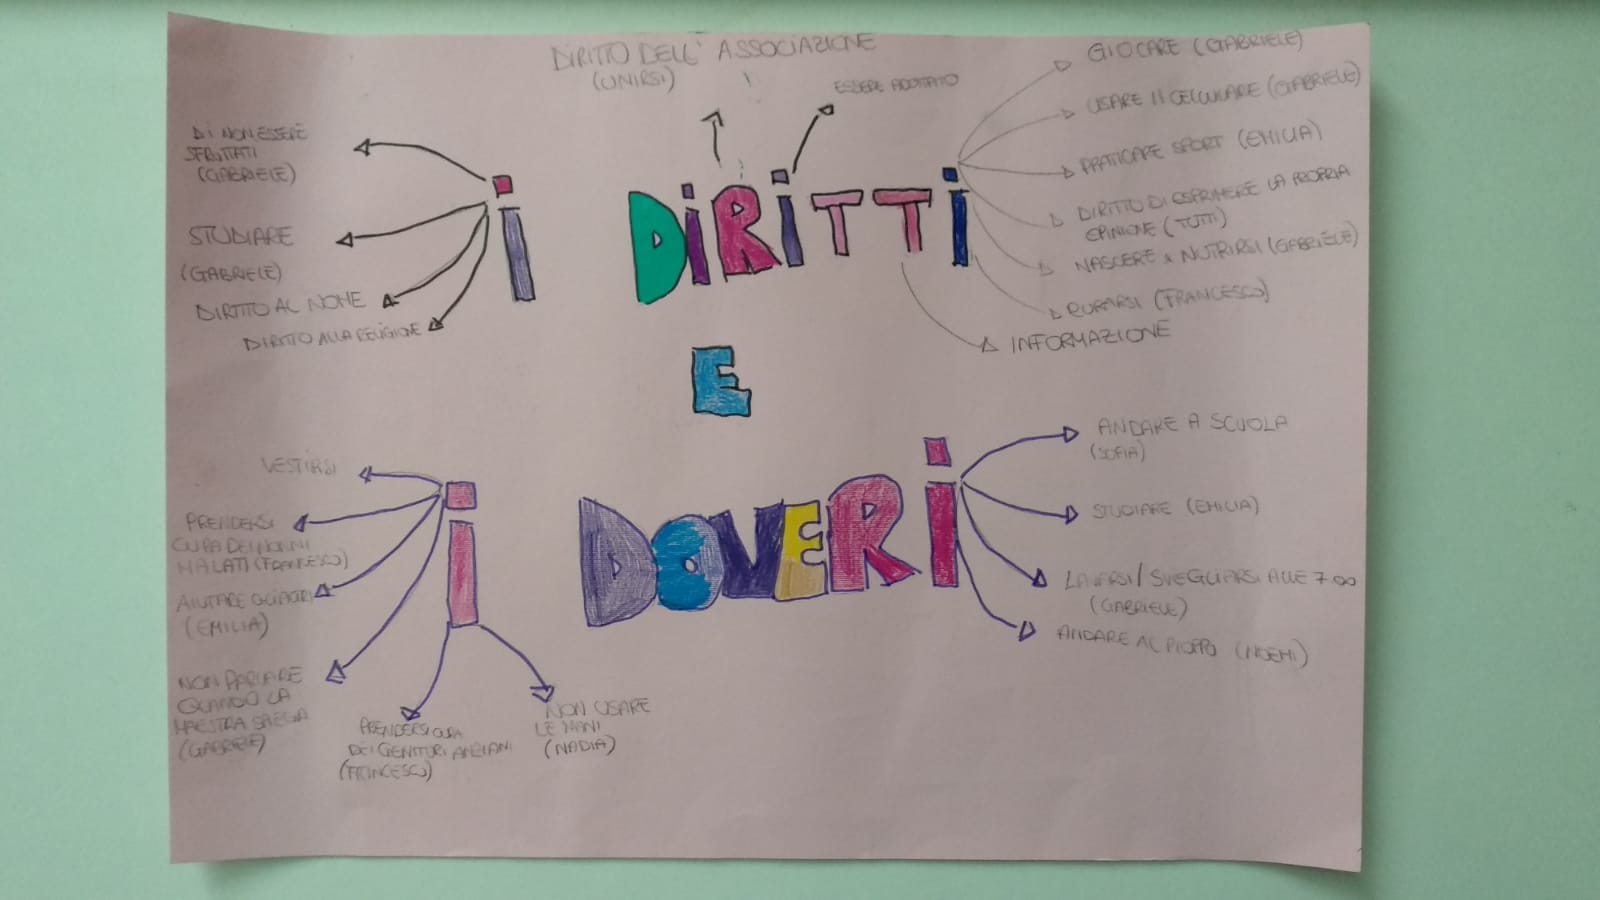 DIRITTO DELL' ASSOCIAZIONE
(UNIRSI)
ESSERE ADOTTATO
DI NON ESSERE
SFRUTTATI
(GABRIELE)
STUDIARE
(GABRIELE)
DIRTITO AL NOME
DIRITTO ALLA RELIGIONE
i DiRiTTi
GIOCARE (GABRIELE)
USARE Il CELLULARE (GABRIELE)
PRATICARE SPORT (EMILIA)
DIRITTO DI ESPRIMERE LA PROPRIA
OPINIONE (TUTTI)
NASCERE NUTRIRSI (GABRIELE)
(FRANCESCO)
INFORMAZIONE
E
i DOVERi
VESTIRSI
PRENDERSI
CURA DEI NONNI
MALATI (FRANCESCO)
AIUTARE GLI ALTRI
(EMILIA)
NON PARLARE
QUANDO LA
MAESTRA SPIEGA
(GABRIELE)
PRENDERSI CURA
DEI GENITORI ANZIANI
(FRANCESCO)
NON USARE
LE MANI
(NADIA)
ANDARE A SCUOLA
(SOFIA)
STUDIARE (EMILIA)
LAVARSI/SVEGLIARSI ALLE 7 00
(GABRIELE)
ANDARE AL PIOPPO (NOEMI)